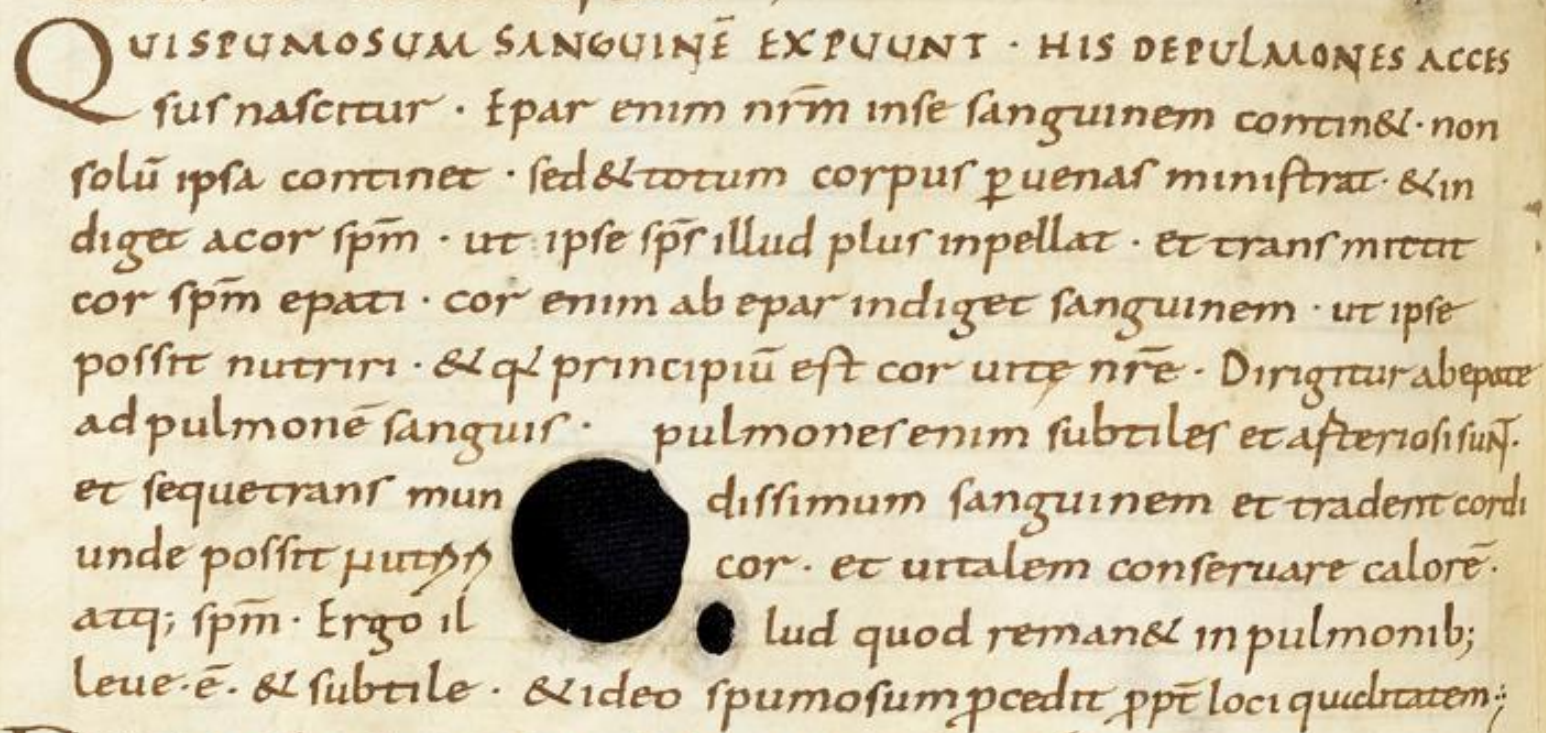 QUISPUMOSUM SANGUINĒ EXPUUNT · HIS DEPULMONES ACCES
sus nascitur · Epar enim nrm̄ inse sanguinem contin&· non
solū ipsa continet · sed&totum corpus ꝑuenas ministrat· &in
diget acor spm̄ · ut ipse sp̄s illud plus inpellat · et transmittit
cor spm̄ epati · cor enim ab epar indiget sanguinem · ut ipse
possit nutriri · & principiū est cor uitę nrē · Dirigitur abepate
ad pulmonē sanguis · pulmones enim subtiles et asteriosi suN̄T·
et sequetrans mundissimum sanguinem et tradent cordi
unde possit cor · et uitalem conseruare calorē·
atq; spm̄ · Ergo illud quod reman& inpulmonib;
leue·ē· & subtile · &ideo spumosum ꝓcedit ꝓpt̄ loci